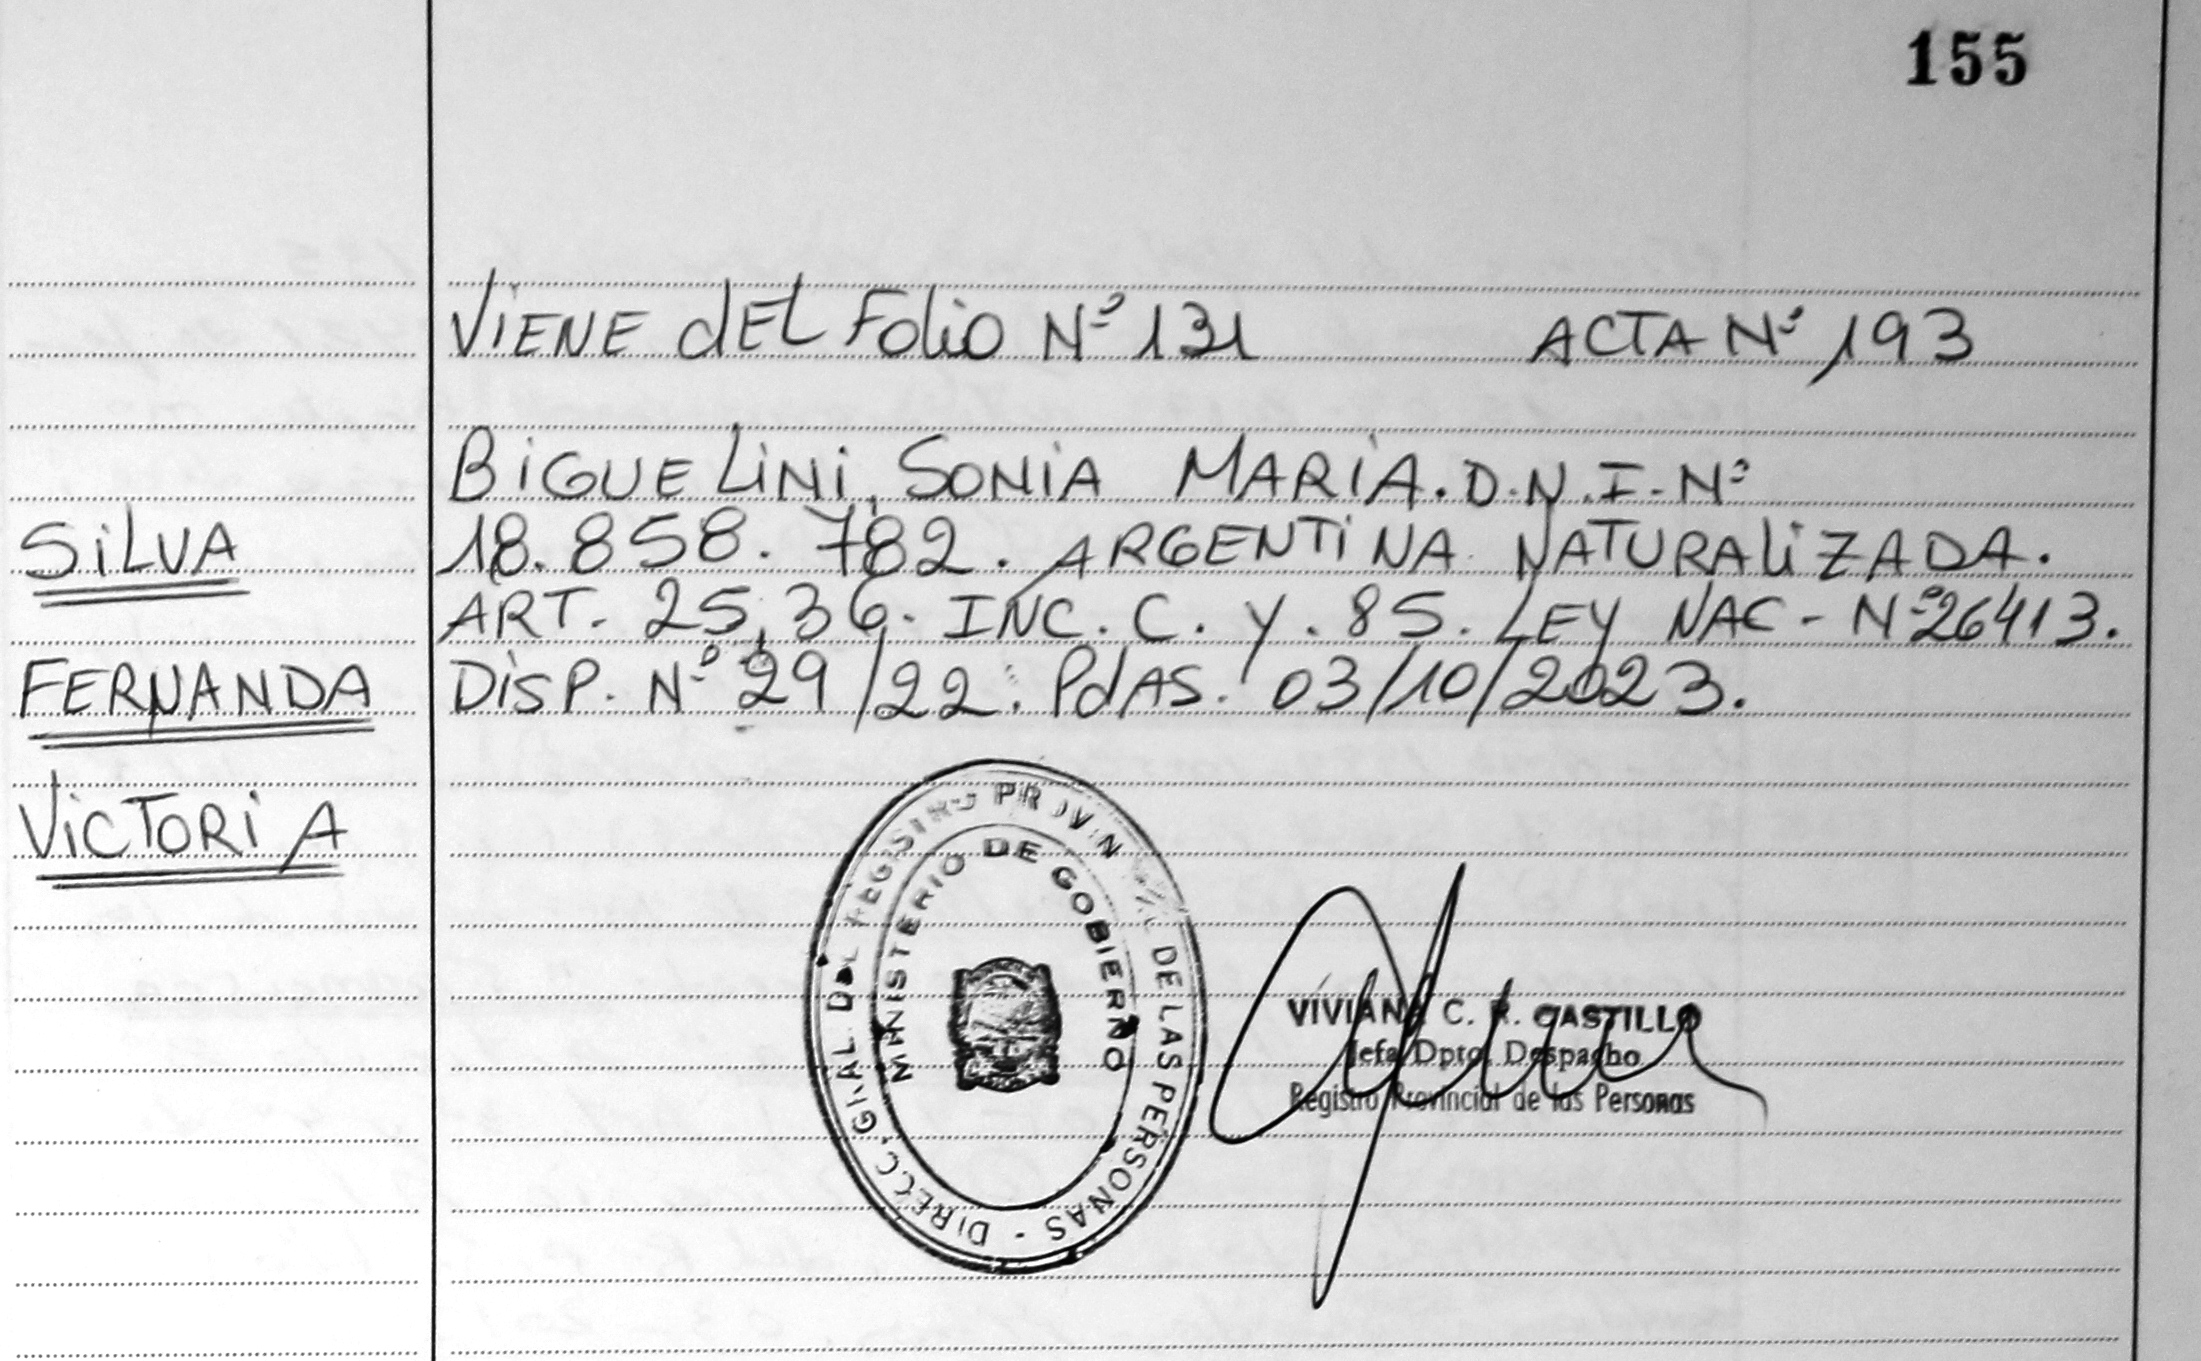 155
VIENE dEL Folio Nº 131 ACTA Nº 193
BIGUELINI, SONIA MARIA. D.N.I. Nº
SILVA 18.858.782. ARGENTINA NATURALIZADA.
ART. 25, 36. INC. C. Y. 85. LEY NAC - Nº 26413.
FERNANDA DISP. Nº 29/22. PdAS. 03/10/2023.
VICTORIA
DIRECC. GRAL DEL REGISTRO PROVINCIAL DE LAS PERSONAS -
MINISTERIO DE GOBIERNO
VIVIANA C. R. CASTILLO
Jefa Dpto. Despacho
Registro Provincial de las Personas